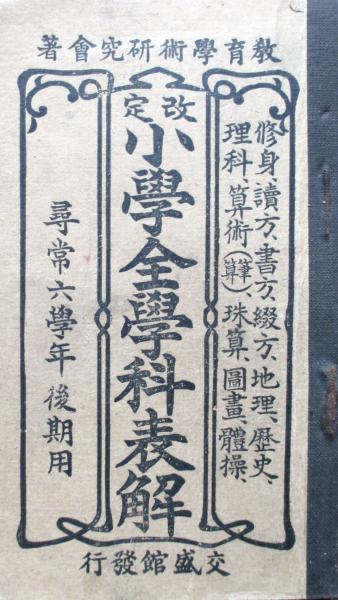 教育學術研究會著
修身、讀方、書方、綴方、地理、歷史、
理科、算術(筆算)珠算、圖畫、體操、
改定
小學全學科表解
尋常六學年後期用
交盛館發行